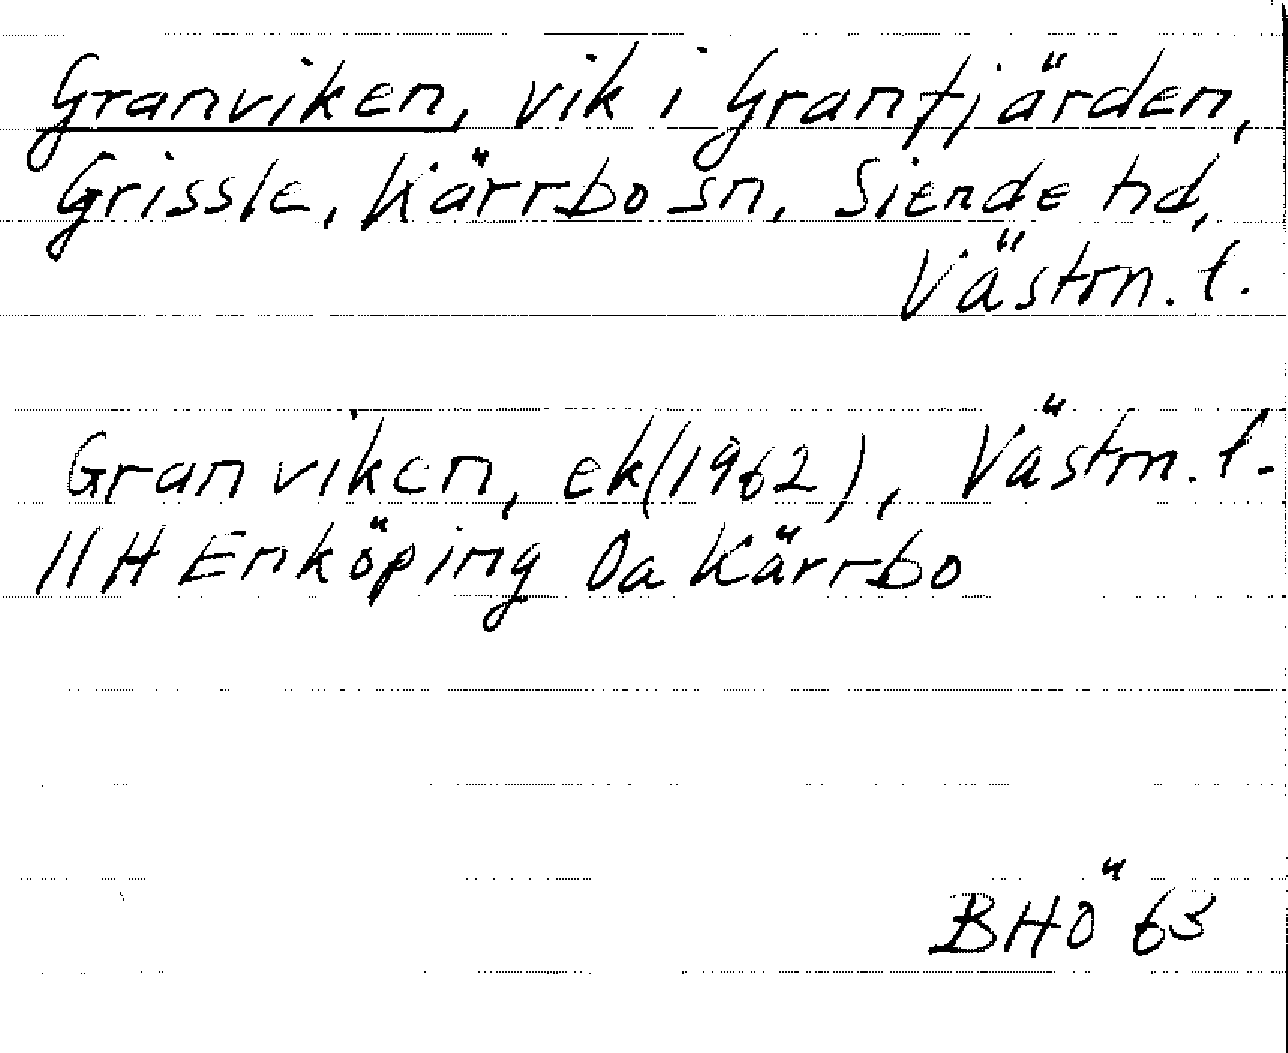 Granviken, vik i Granfjärden,
Grissle, Kärrbo sn, Siende hd,
Västm. l.
Granviken, ek(1962), Västm. l.
11H Enköping 0a Kärrbo
BHÖ 63